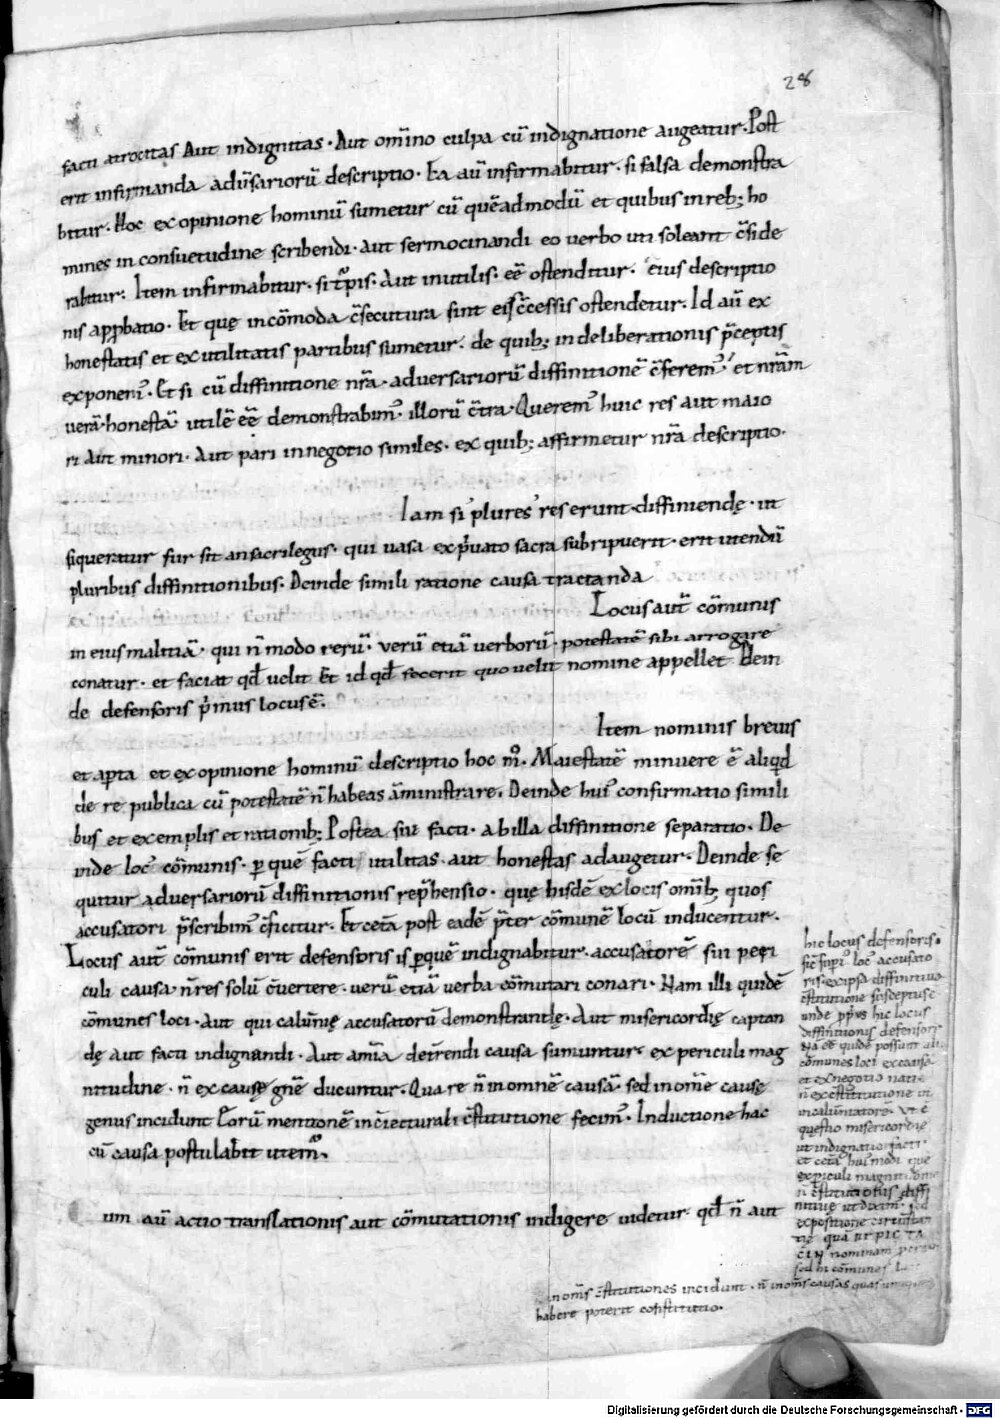 28
facti atrocitas Aut indignitas · Aut om̄ino culpa cū indignatione augeatur · Post
erit infirmanda adūsariorū descriptio · Ea aū infirmabitur · si falsa demonstra
bitur · Hoc ex opinione hominū sumetur cū quēadmodū et quibus in reb; ho
mines in consuetudine scribendi · aut sermocinandi eo verbo uti soleant c̄side
rabitur · Item infirmabitur · si t᷒pis · Aut inutilis · ēē ostenditur · eius descriptio
nis apꝓbatio · Et quę incōmoda c̄secutura sint ostendetur · Id aū ex
honestatis et ex utilitatis partibus sumetur · de quib; in deliberationis p̄ceptis
exponem᷒ · Et si cū diffinitione nr̄a · adversariorū diffinitionē c̄ferem᷒ · et nr̄am
verā · honestā utilē ēē demonstrabim᷒ · illorū c̄tra · Querem᷒ huic res aut maio
ri Aut minori · Aut pari in negotio similes · ex quib; affirmetur nr̄a descriptio ·
Iam si plures res erunt diffiniendę · ut
si queratur fur sit an sacrilegus · qui vasa ex p̓vato sacra subripuerit · erit utendū
pluribus diffinitionibus · Deinde simili ratione causa tractanda
Locus aut̄ cōmunis
in eius malitiā · qui n̄ modo rerū · verū etiā verborū · potestatē sibi arrogare
conatur · et faciat qđ velit Et id qđ fecerit quo velit nomine appellet Dein
de defensoris p̓mus locus ē ·
Item nominis brevis
et aꝑta et ex opinione hominū descriptio hoc m̊ · Maiestatē minuere ē aliqđ
de re publica cū potestatē n̄ habeas āministrare · Deinde hui᷒ confirmatio simili
bus et exemplis et rationib; Postea sui facti · ab illa diffinitione separatio · De
inde loc᷒ cōmunis · ꝑ quē facti utilitas aut honestas adaugetur · Deinde se
quitur adversariorū diffinitionis rep̄hensio · quę hisdē ex locis om̄ib; quos
accusatori p̄scribim᷒ c̄ficitur · Et cetā post eadē p̄ter cōmunē locū inducentur ·
Locus aut̄ cōmunis erit defensoris is ꝑ quē indignabitur · accusatorē sui peri
culi causa · n̄ res solū c̄vertere · verū etiā verba cōmutari conari · Nam illi quidē
cōmunes loci · Aut qui calūnię accusatorū demonstrandę · Aut misericordię captan
dę Aut facti indignandi · Aut a m̄ia det̄rendi causa sumuntur · ex periculi mag
nitudine · n̄ ex causę gn̄e ducuntur · Quare n̄ in omnē causā · sed in om̄e causę
genus incidunt Eorū mentionē in c̄iecturali c̄stitutione fecim᷒ · Inductione hac
cū causa postulabit utem᷒ ·
um aū actio translationis aut cōmutationis indigere videtur · qđ n̄ aut
hic locus defensoris ·
loc᷒ accusato
ris · ex ipsa diffinitiva
c̄stitutione
unde hic locus
diffinitionis defensori
possunt ali
cōmunes loci ex causa
et ex negotio
n̄ ex c̄stitutione ut
in calūniatorē · Ut ē
questio misericordię
ut indignatio facti
et cetā hui᷒modi quę
ex periculi magnitudine
n̄ c̄stitutionis diffi
nitivę
expositione circūstan
nominam
sed hi cōmunes
in om̄s c̄stitutiones incidunt · n̄ in om̄s causas quas
habere poterit constitutio ·
Digitalisierung gefördert durch die Deutsche Forschungsgemeinschaft - DFG